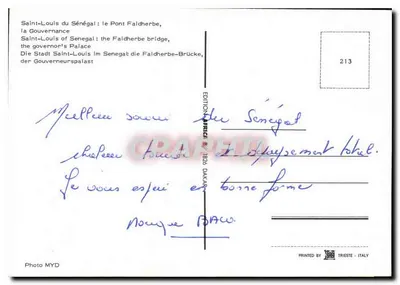 Saint-Louis du Sénégal : le Pont Faidherbe,
la Gouvernance
Saint-Louis of Senegal : the Faidherbe bridge,
the governor's Palace
Die Stadt Saint-Louis im Senegal: die Faidherbe-Brücke,
der Gouverneurspalast
213
Meilleur souvenir du Sénégal
chaleur dépaysement total.
Je vous espère en bonne forme
Monique
EDITION AFRICA DAKAR
Photo MYD
PRINTED BY TRIESTE - ITALY